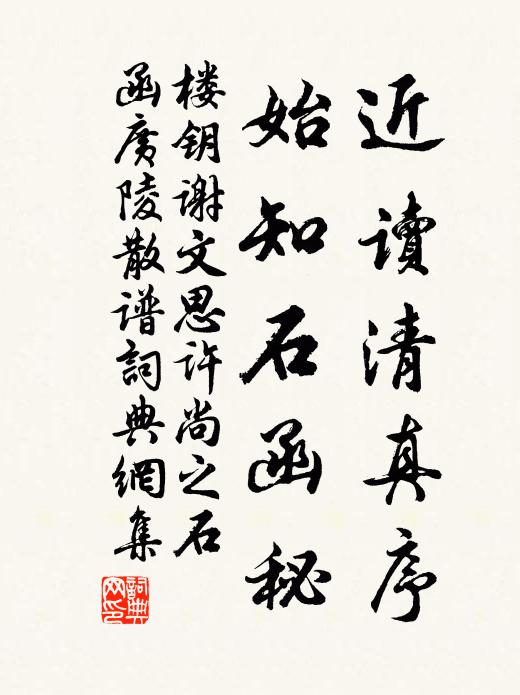 近读清真序
始知石函秘
楼钥谢文思许尚之石
函广陵散谱詞典網集
詞典
网印